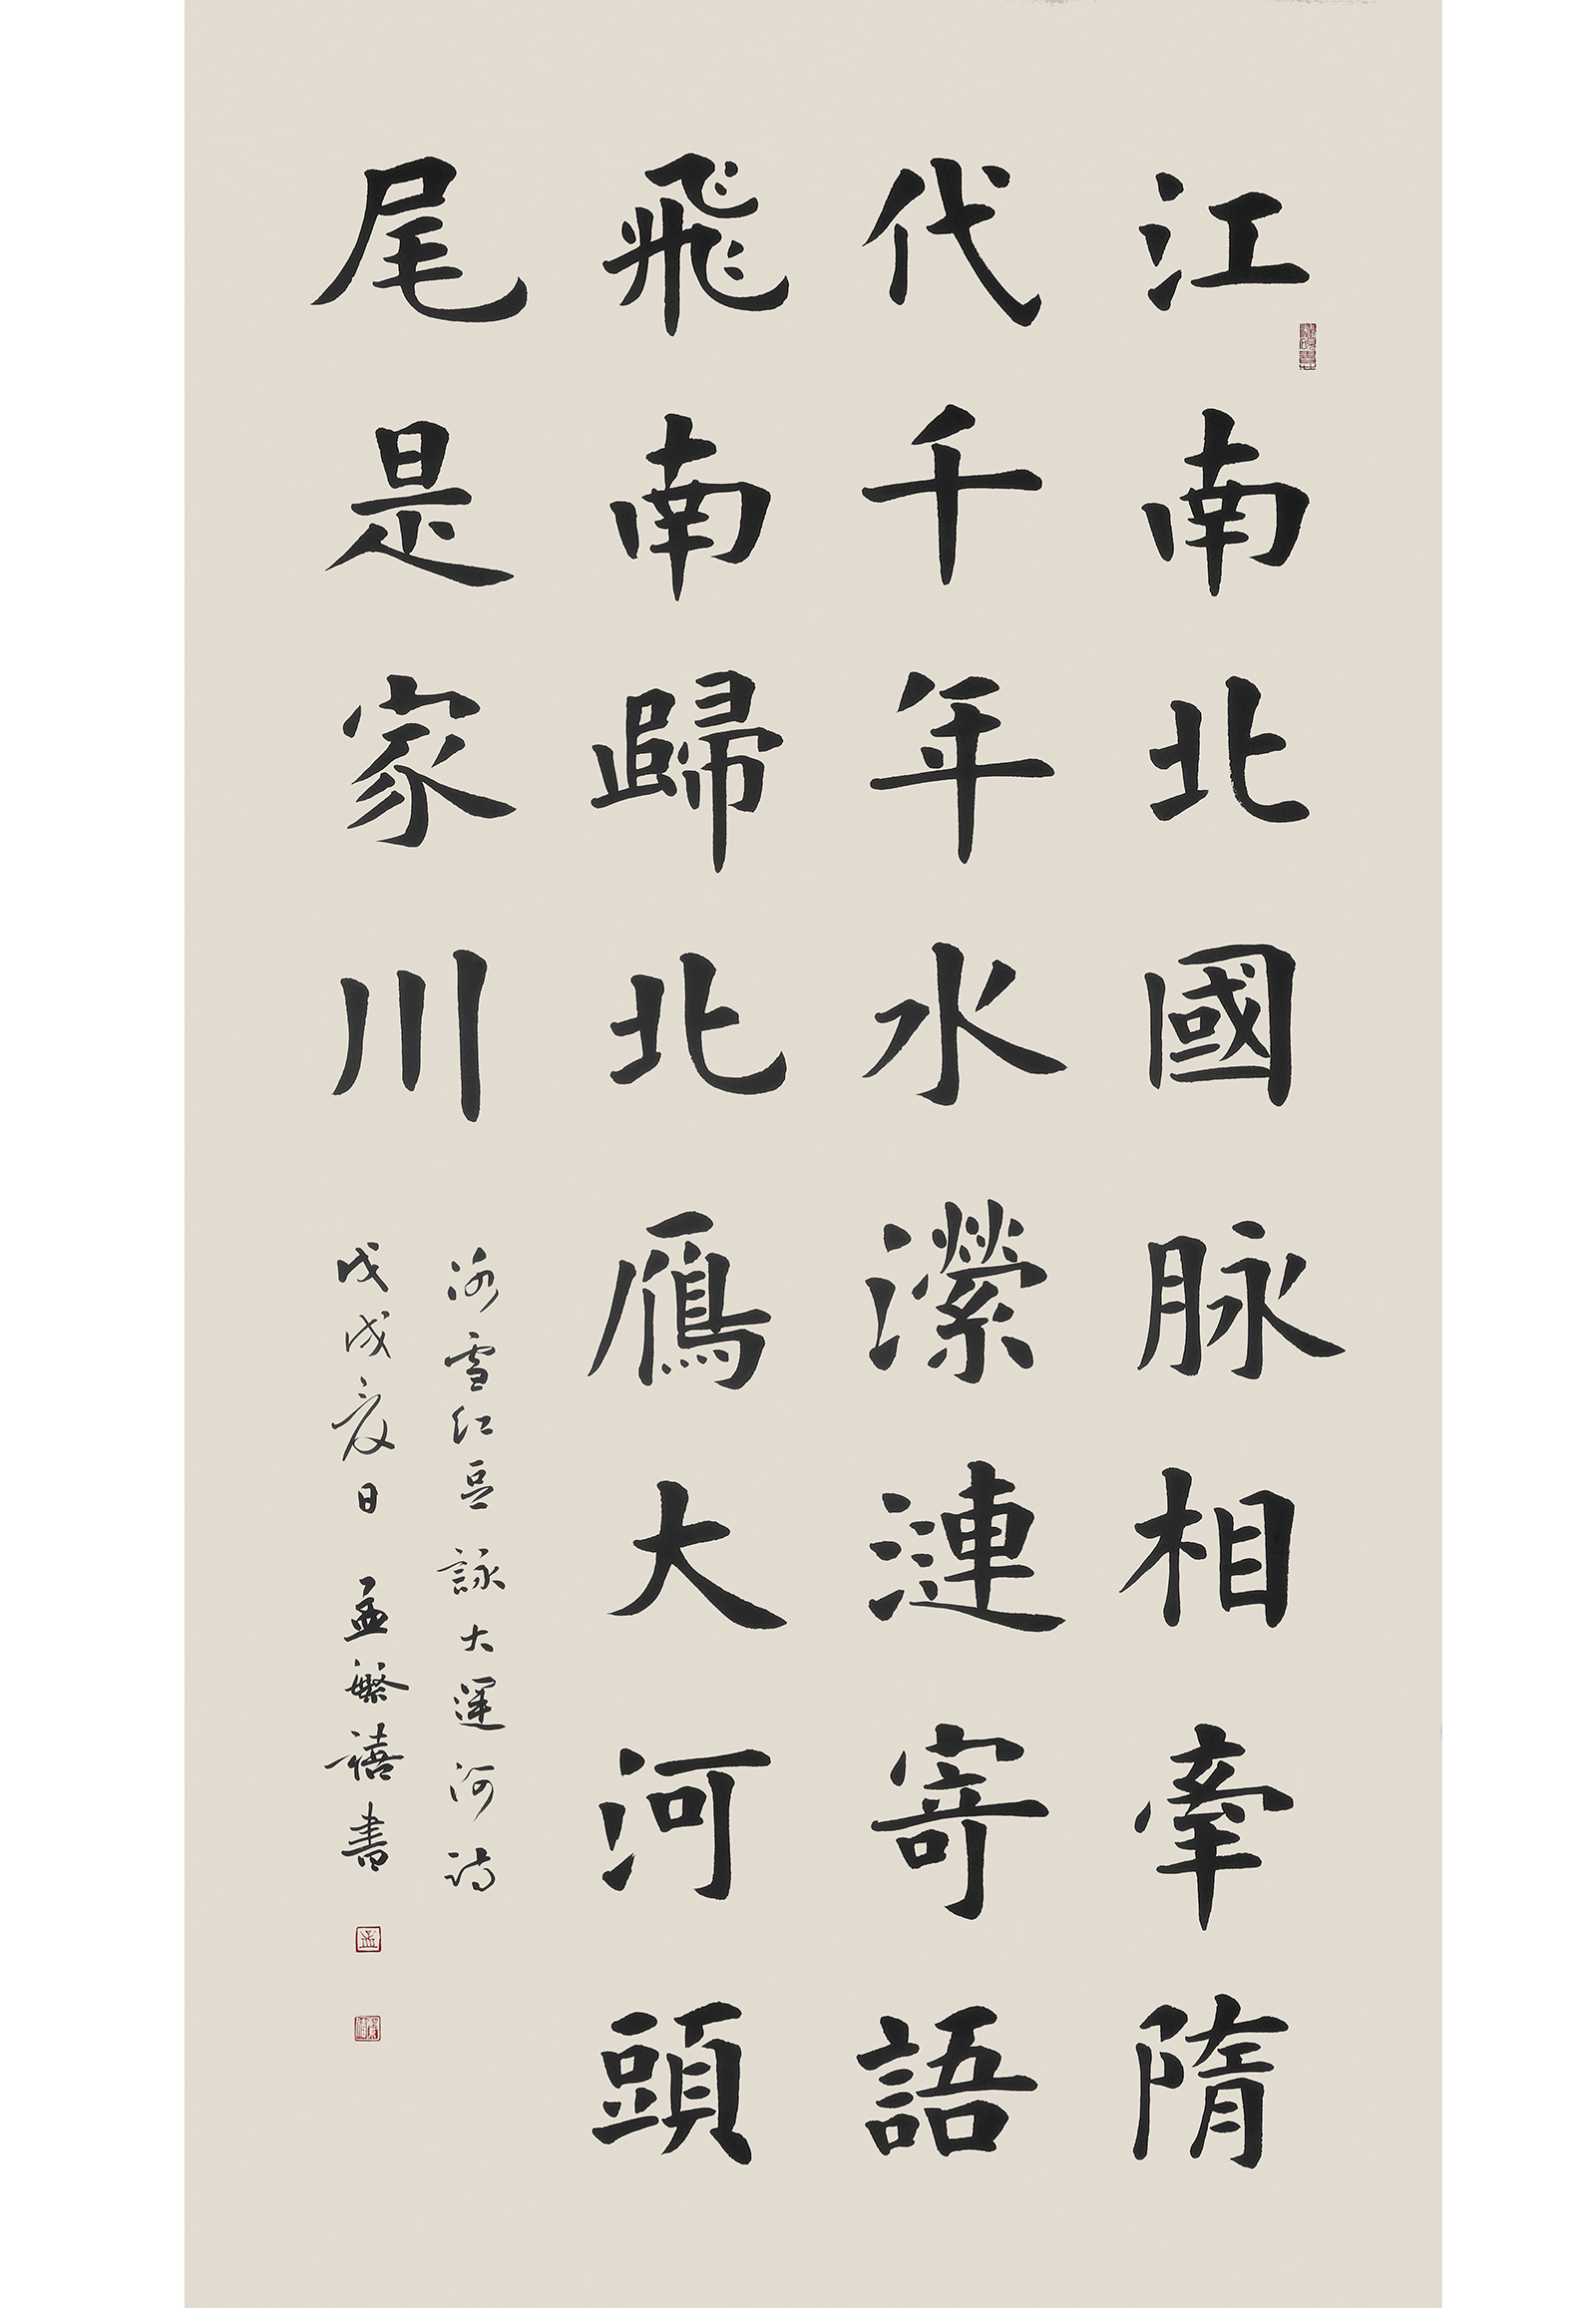 江南北國脉相牽隋
代千年水瀠漣寄語
飛南歸北鴈大河頭
尾是家川
冰雪紅豆詠大運河詩
戊戌夏日孟繁禧書